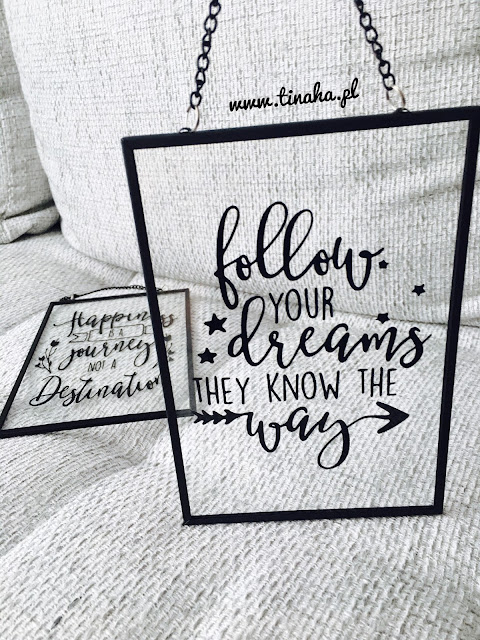 www.tinaha.pl
follow
YOUR
dreams
THEY KNOW THE
way
Happiness
IS A
journey
NOT A
Destination